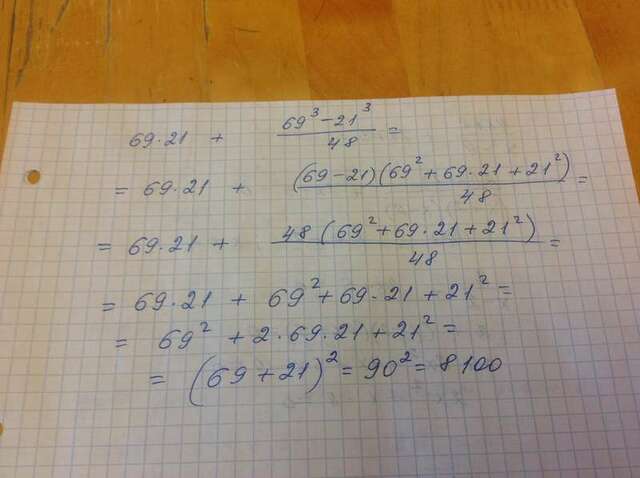 69·21 + (69³ − 21³)/48 =
= 69·21 + (69 − 21)(69² + 69·21 + 21²)/48 =
= 69·21 + 48(69² + 69·21 + 21²)/48 =
= 69·21 + 69² + 69·21 + 21² =
= 69² + 2·69·21 + 21² =
= (69 + 21)² = 90² = 8100